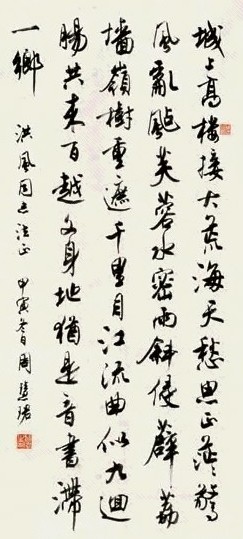 城上高樓接大荒海天愁思正茫〻驚
風亂颭芙蓉水密雨斜侵薜荔
墻嶺樹重遮千里目江流曲似九迴
腸共來百越文身地猶是音書滯
一鄉
洪風同志法正 甲寅冬日周慧珺